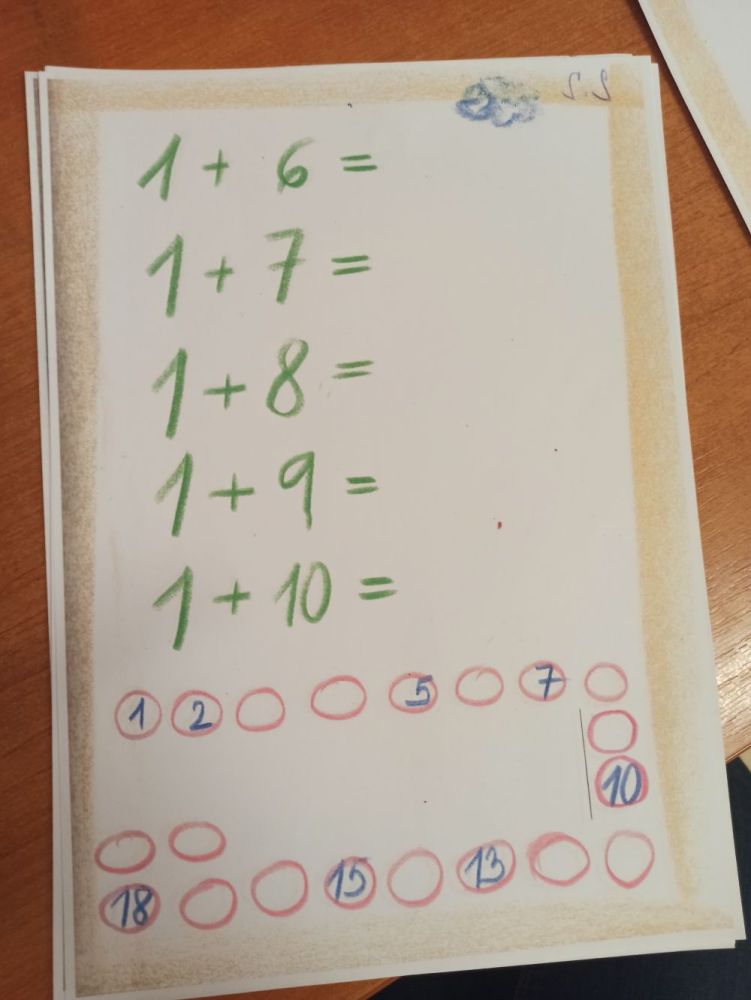 1 + 6 =
1 + 7 =
1 + 8 =
1 + 9 =
1 + 10 =
1 2 5 7
10
18 15 13